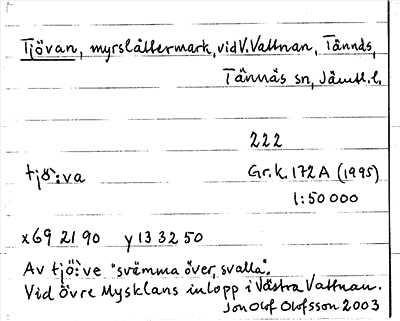 Tjövan, myrslåttermark, vid V. Vattnan, Tännäs,
Tännäs sn, Jämtl. l.
222
tjö`:va Gr. k. 172A (1995)
1:50 000
x69 21 90 y 13 32 50
Av tjö:`ve "svämma över, svalla".
Vid Övre Mysklans inlopp i Västra Vattnan.
Jon Olof Olofsson 2003